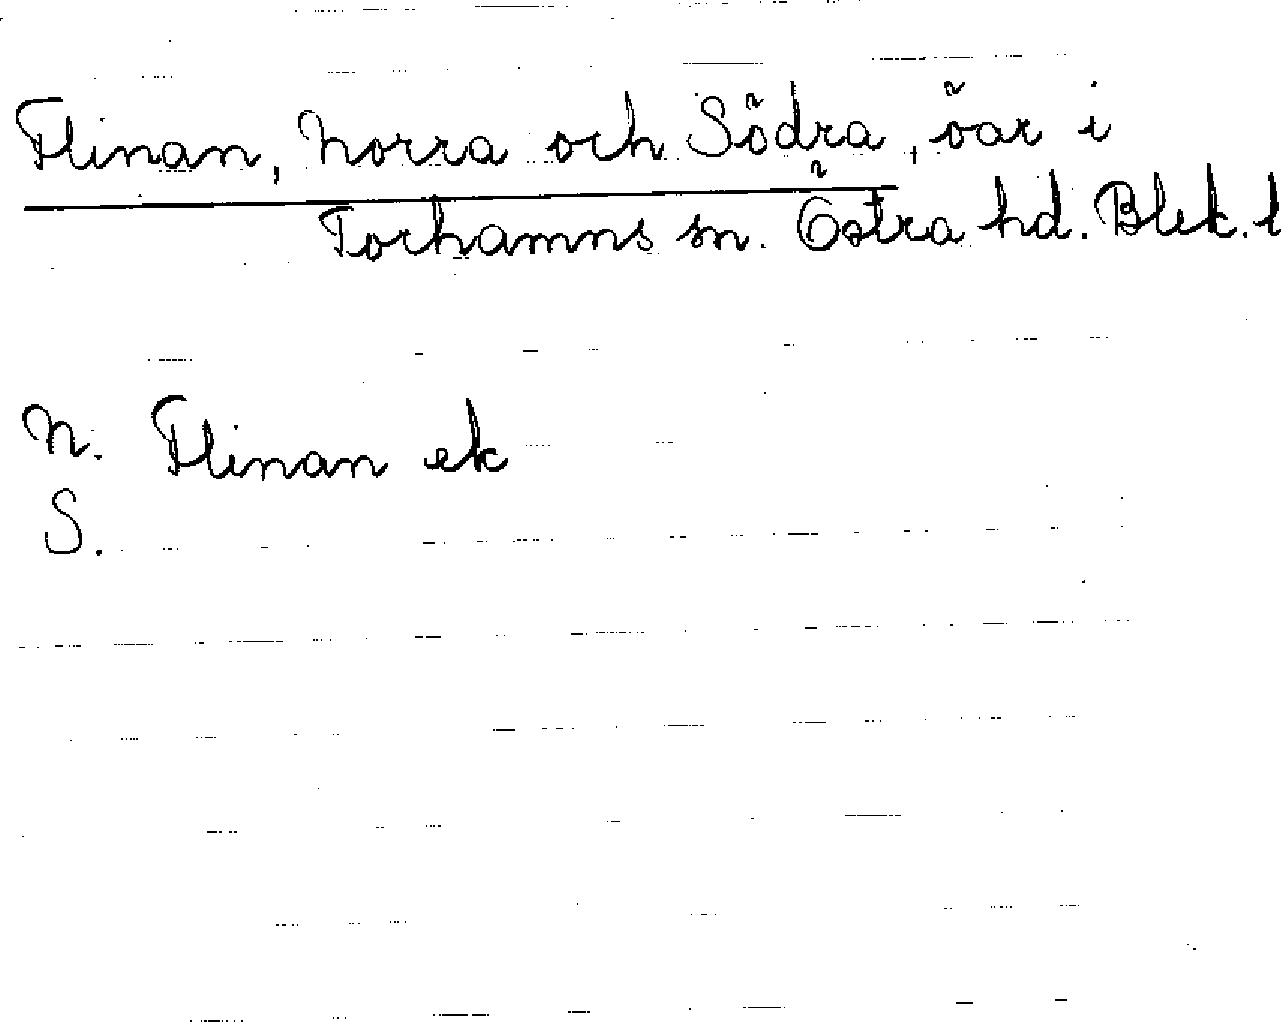 Flinan, Norra och Södra, öar i
Torhamns sn. Östra hd. Blek. l
N. Flinan ek
S.